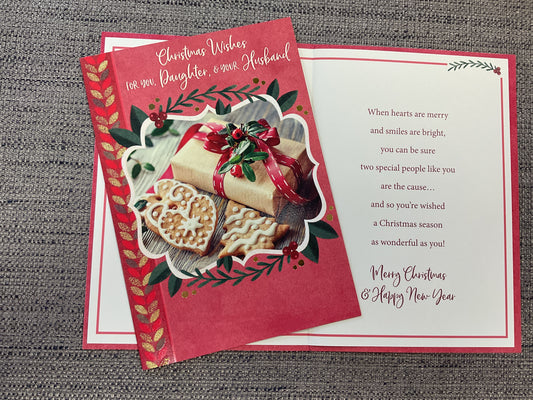 Christmas Wishes
FOR YOU, Daughter, & YOUR Husband
When hearts are merry
and smiles are bright,
you can be sure
two special people like you
are the cause…
and so you're wished
a Christmas season
as wonderful as you!
Merry Christmas
& Happy New Year